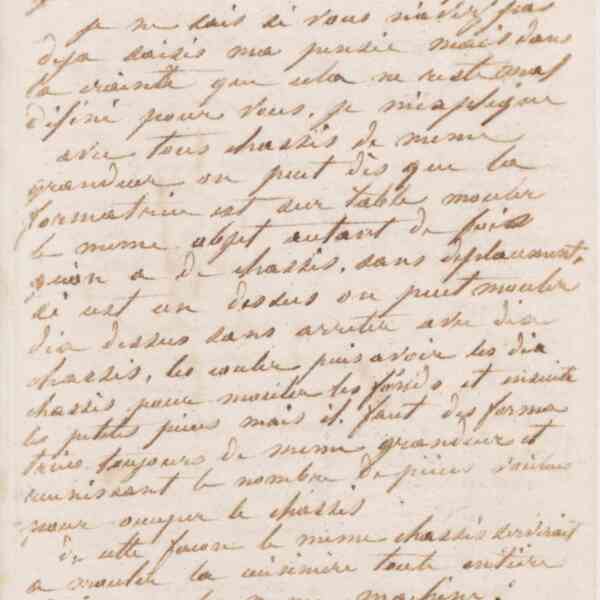 je ne sais si vous n'avez pas
deja saisis ma pensée mais dans
la crainte que cela ne reste mal
difini pour vous, je m'esplique
avec tous chassis de meme
grandeur on peut dès que la
formatrice est sur table mouler
le meme objet autant de fois
qu'on a de chassis, sans deplacement,
si est un dessus on peut mouler
dix dessus sans arreter avec dix
chassis, les couler puis avoir les dix
chassis pour mouler les fonds et ensuite
les petites pieces mais il faut des forma
trices toujours de meme grandeur et
reunissant le nombre de pieces voulues
pour occuper le chassis
de cette facon le meme chassis servirait
a mouler la cuisiniere toute entiere
machine